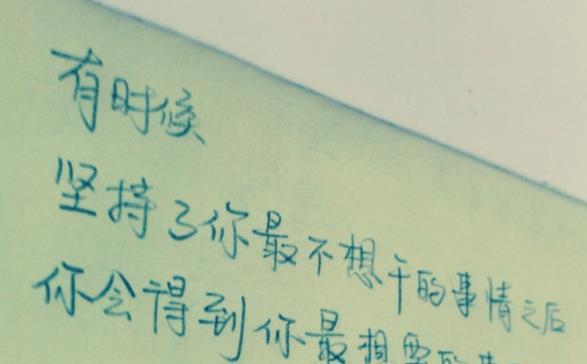 有时候
坚持了你最不想干的事情之后
你会得到你最想要的